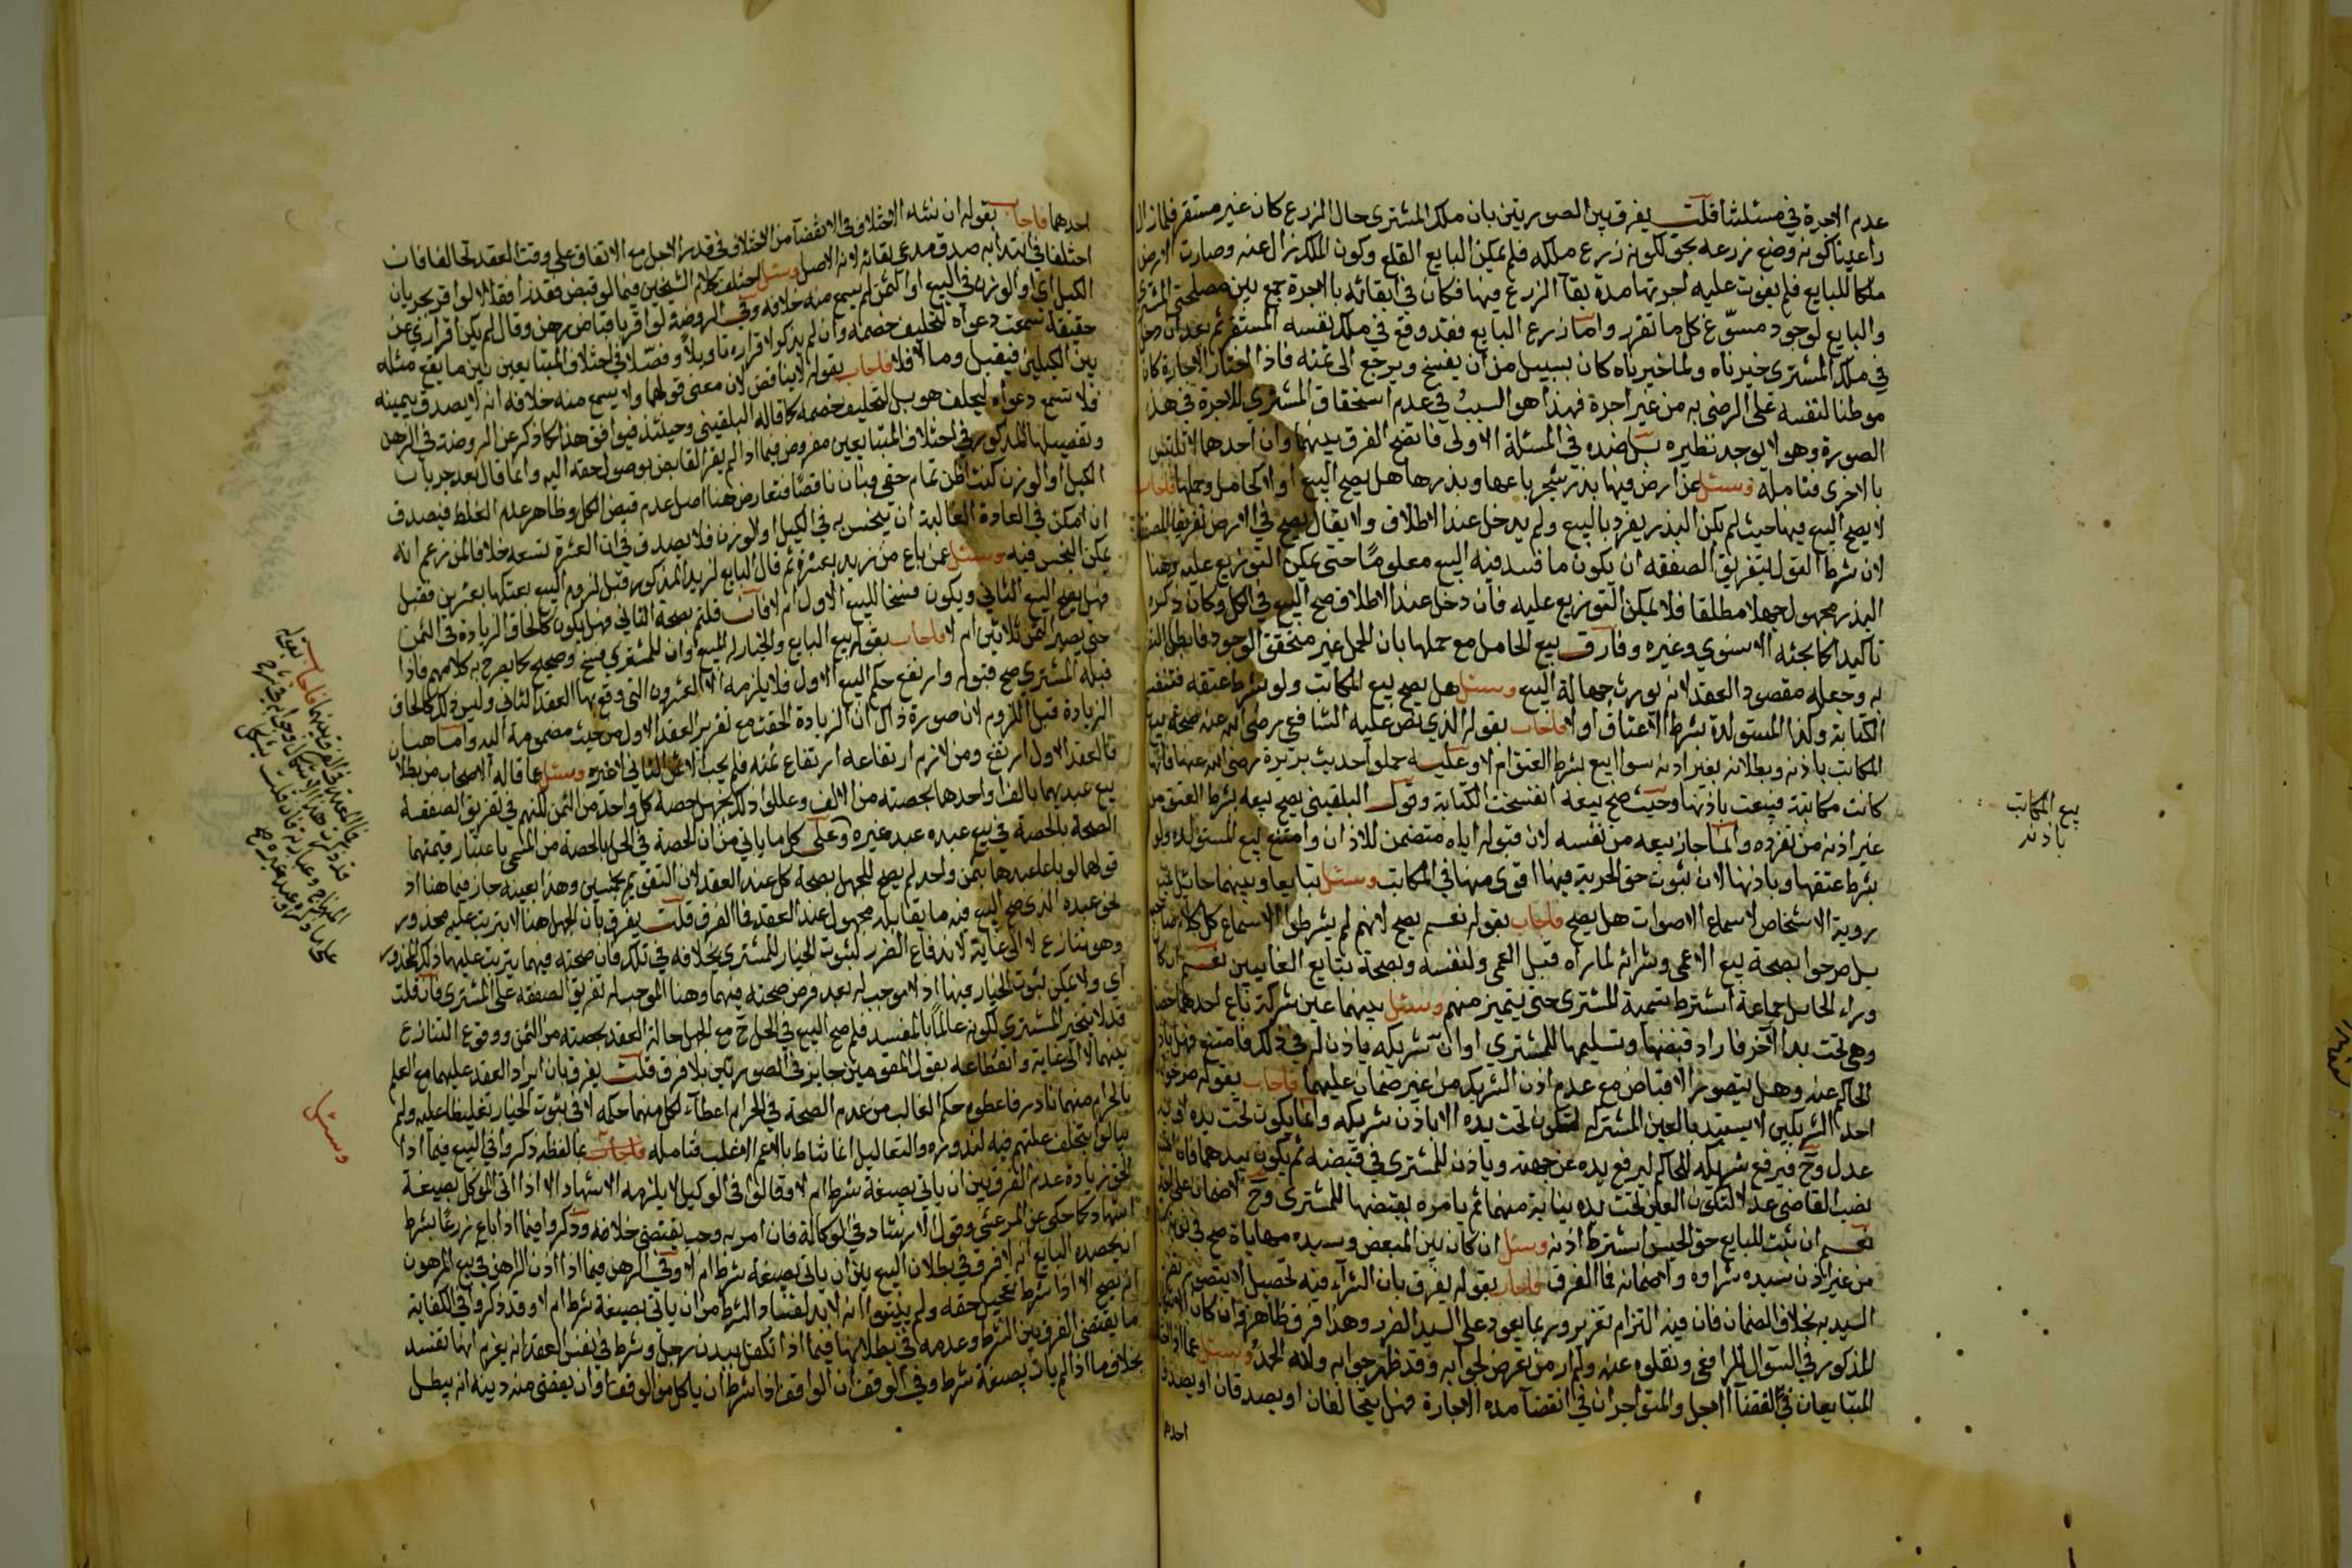 عدم الاجرة في مسئلتنا قلت يفرق بين الصورتين بان ملك المشتري حال الزرع كان غير مستقر فلما زال
راعينا كونه وضع زرعه بحق لكونه زرع ملكه فلم يمكن البايع القلع وكون الملك زال عنه وصارت الارض
ملكا للبايع فلم يفوت عليه اجرتها مدة بقآ الزرع فيها فكان في ابقائه بالاجرة جمع بين مصلحتي المشتري
والبايع لوجود مسوّغ كل ما تقرر واما زرع البايع فقد وقع في ملك نفسه المستقر ثم بعد ان دخل
في ملك المشتري خيرناه ولما خيرناه كان بسبيل من ان يفسخ ويرجع الى ثمنه فاذا اختار الاجازة كان
موطنا لنفسه على الرضى به من غير اجرة فهذا هو السبب في عدم استحقاق المشتري للاجرة في هذه
الصورة وهو لا يوجد نظيره بل ضده في المسئلة الاولى فاتضح الفرق بينهما وان احدهما لا تلتبس
بالاخرى فتامله وسئل عن ارض فيها بذر شجر باعها وبذرها هل يصح البيع او لا كالحامل وحملها فاجاب
لا يصح البيع فيها حيث لم يكن البذر يفرد بالبيع ولم يدخل عند الاطلاق ولا يقال يصح في الارض تفريقا للصفقة
لان شرط القول بتفريق الصفقة ان يكون ما فسد فيه البيع معلومًا حتى يمكن التوزيع عليه وهنا
البذر مجهول جهلا مطلقا فلا يمكن التوزيع عليه فان دخل عند الاطلاق صح البيع في الكل وكان ذكره
تاكيدا كما بحثه الاسنوي وغيره وفارق بيع الحامل مع حملها بان الحمل غير متحقق الوجود فابطل البيع
به وجعله مقصود العقد لانه يورث جهالة البيع وسئل هل يصح بيع المكاتب ولو بشرط عتقه فتنفسخ
الكتابة وكذا المستولدة بشرط الاعتاق او لا فاجاب بقوله الذي نص عليه الشافعي رضي الله عنه صحة بيع
المكاتب باذنه وبطلانه بغير اذنه سوا ابيع بشرط العتق ام لا وعليه حملوا حديث بريرة رضي الله عنها فانها
كانت مكاتبة فبيعت باذنها وحيث صح بيعه انفسخت الكتابة وقول البلقيني يصح بيعه بشرط العتق من
غير اذنه من تفرده وانما جاز بيعه من نفسه لان قبوله اياه متضمن للاذن وامتنع بيع المستولدة ولو
بشرط عتقها وباذنها لان ثبوت حق الحرية فيها اقوى منها في المكاتب وسئل تبايعا وبينهما حائل غير
روية الاشخاص لا سماع الاصوات هل يصح فاجاب بقوله نعم يصح لانهم لم يشرطوا الا سماع كل كلام صاحبه
بل صرحوا بصحة بيع الاعمى وشرائه لما راه قبل العمى ولنفسه وبصحة تبايع الغايبين نعم ان كان
وراء الحائل جماعة اشترط تسمية المشتري حتى يتميز منهم وسئل بينهما عين شركة باع احدهما حصته
وهي تحت يد الآخر فاراد قبضها وتسليمها للمشتري او ان شريكه ياذن له في ذلك فامتنع فهل ياذن
الحاكم عنه وهل يتصور الاقباض مع عدم اذن الشريك من غير ضمان عليهما فاجاب بقوله صرحوا بان
احد الشريكين لا يستبد بالعين المشتركة لتكون تحت يده الا باذن شريكه وانما يكون تحت يده او يد
عدل وح فيرفع شريكه للحاكم ليرفع يده عن جهته وياذن للمشتري في قبضه ثم يكون بيدهما فان ابى
نصب القاضي عدلا لتكون العين تحت يده نيابة منهما ثم يامره بقبضها للمشتري وح لا ضمان على احد
نعم ان ثبت للبايع حق الحبس اشترط اذنه وسئل ان كان بين المبعض وسيده مهاياة صح في نوبته
من غير اذن سيده شراوه واضمانه فما الفرق فاجاب بقوله يفرق بان الشرآء فيه تحصيل لا يتضرر
السيد به بخلاف الضمان فان فيه التزام تغرير وربما يعود على السيد الضرر وهذا فرق ظاهر وان كان
المذكور في السؤال للرافعي ونقلوه عنه ولم ار من تعرض لجوابه وقد ظهر جوابه ولله الحمد وسئل عما اذا اختلف
المتبايعان في انقضآ الاجل والمتواجران في انقضآ مدة الاجارة فهل يتحالفان او يصدقان او يصدق
احدهما
بيع المكاتب
باذنه
احدهما فاجاب بقوله ان نشاء الاختلاف في الانقضآ من الاختلاف في قدر الاجل مع الاتفاق على وقت العقد تحالفا فان
اختلفا في ابتدايه صدق مدعي بقائه لانه الاصل وسئل اختلف كلام الشيخين فيما لو قبض فقد نقلا لو اقر بجريان
الكيل او الوزن في البيع او الثمن لم يسمع منه خلافه وفي الروضة لو اقر باقباض رهن وقال لم يكن اقراري عن
حقيقة سمعت دعواه لتحليف خصمه وان لم يذكر لاقراره تاويلا وفصّلا في اختلاف المتبايعين بين ما يقع مثله
بين الكيلين فيقبل وما لا فلا فاجاب بقوله لا يناقض لان معنى قولهما ولا يسمع منه خلافه انه لا يصدق بيمينه
فلا تسمع دعواه ليحلف هو بل لتحليف خصمه كما قاله البلقيني وحينئذ فيوافق هذا ما ذكر عن الروضة في الرهن
وتفصيلهما المذكور في اختلاف المتبايعين مفروض فيما اذا لم يقر القابض بوصول حقه اليه وانما قال بعد جريان
الكيل او الوزن كنت اظن تمام حقي فبان ناقصًا فتعارض هنا اصل عدم قبض الكل وظاهر علم الغلط فيصدق
ان امكن في العادة الغالبة ان يبخس به في الكيل او الوزن فلا يصدق في ان العشرة تسعه خلافا لمن زعم انه
يمكن البخس فيه وسئل عمن باع من زيد بعشرة ثم قال البايع لزيد المذكور قبل لزوم البيع بعتكها بعشرين فقبل
فهل يصح البيع الثاني ويكون فسخا للبيع الاول ام لا فان قلتم بصحة الثاني فهل يكون كالحاق الزيادة في الثمن
حتى يصير الثمن ثلاثين ام لا فاجاب بقوله بيع البايع والخيار له المبيع او ان للمشتري فسخ وصحيح كما يصرح به كلامهم فاذا
قبله المشتري صح قبوله وارتفع حكم البيع الاول فلا يلزمه الا العشرون التي وقع بها العقد الثاني وليس ذلك كالحاق
الزيادة قبل اللزوم لان صورة ذاك ان الزيادة الحقت مع تقرير العقد الاول من حيث مضمومة اليه واما هنا
فالعقد الاول ارتفع ومن لازم ارتفاعه ارتفاع ثمنه فلم يجب الا ثمن الثاني لا غيره وسئل عما قاله الاصحاب من بطلان
بيع عبديهما بالف او احدهما بحصته من الالف وعللوا ذلك بجهل حصة كل واحد من الثمن لكنهم في تفريق الصفقة
الصحة بالحصة في بيع عبده عبد غيره وعلى كل ما ياتي من ان الحصة في الحل بالحصة من المسمى باعتبار قيمتهما
قولهما لو باعا عبدهما بثمن واحد لم يصح للجهل بحصة كل عند العقد لان التقويم تخمين وهذا بعينه جاز فيما هنا اذ
نحو عبده الذي صح البيع فيه ما يقابله مجهول عند العقد فما الفرق قلت يفرق بان الجهل هنا لا يترتب عليه محذور
وهو تنازع لا الى غاية لاندفاع الضرر لثبوت الخيار للمشتري بخلافه في تلك فان صحته فيهما يترتب عليهما ذلك المحذور
اي ولا يمكن ثبوت الخيار فيها اذ لا موجب له بعد فرض صحته فيهما وهنا الموجب له تفريق الصفقة على المشتري فان قلت
قد لا يتخير المشتري لكونه عالمًا بالمفسد فلم صح البيع في الحل ح مع الجهل حالة العقد بحصته من الثمن ووقوع التنازع
بينهما لا الى غاية وانقطاعه بقول المقومين جايز في الصورتين بلا فرق قلت يفرق بان ايراد العقد عليهما مع العلم
بالحرام منهما نادر فاعطوه حكم الغالب من عدم الصحة في الحرام اعطآء لكل منهما حكمه لا في ثبوت الخيار تغليظا عليه ولم
يبالوا بتخلف علتهم فيه لندوره والتعاليل انما تناط بالاعم الاغلب فتامله فاجاب عما لفظه ذكروا في البيع فيما اذا
اشهاد كما حكي عن المرعشي وقول الارشاد في الوكالة فان امر به وجب يقتضي خلافه وذكروا فيما اذا باع زرعًا بشرط
ان يحصده البايع انه لا فرق في بطلان البيع بين ان ياتي بصيغة شرط ام لا وفي الرهن فيما اذا اذن الراهن في بيع المرهون
انه يصح الا اذا شرط تعجيل حقه ولم يبينوا انه لا بد لفساد الشرط من ان ياتي بصيغة شرط ام لا وقد ذكروا في الكفاية
ما يقتضي الفرق بين الشرط وعدمه في بطلانها فيما اذا تكفل ببدن رجل وشرط في نفس العقد انه يغرم انها تفسد
بخلاف ما اذا لم يات بصيغة شرط وفي الوقف ان الواقف اذا شرط ان ياكل من الوقف او ان يقضى منه دينه انه يبطل
وسئل